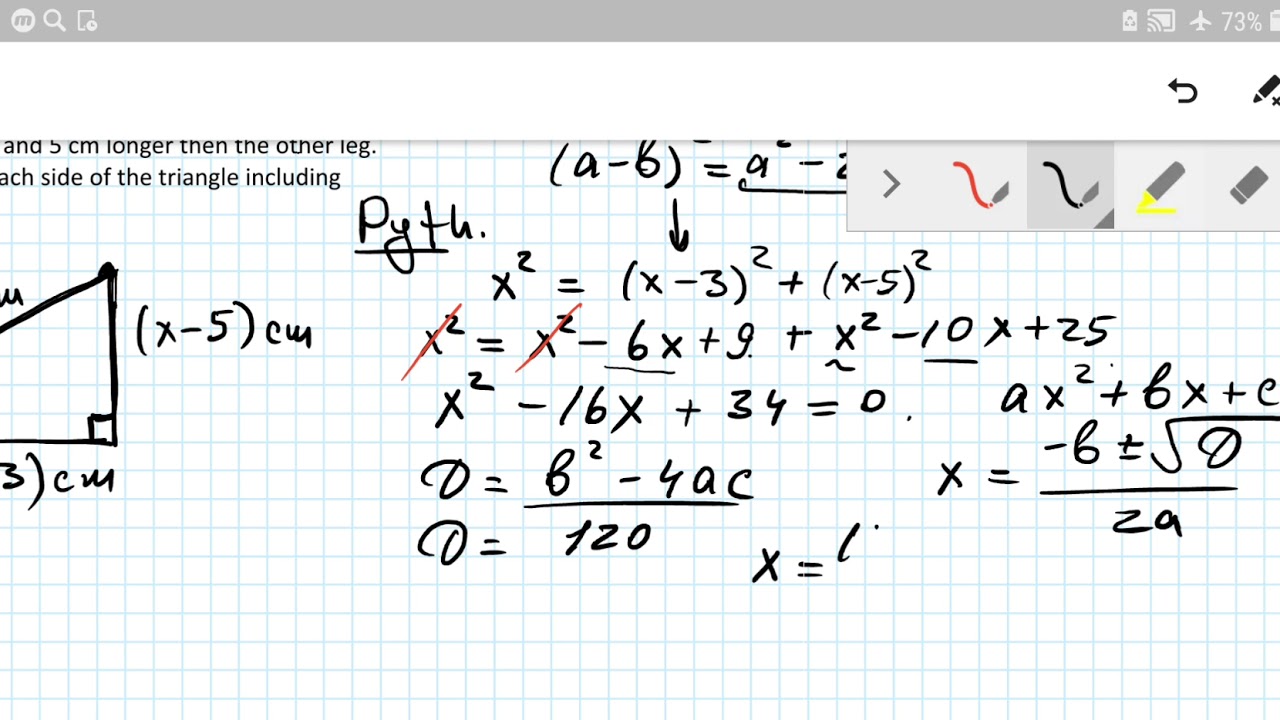 73%
and 5 cm longer then the other leg.
ach side of the triangle including
(a-b)² = a² -
Pyth.
x² = (x-3)² + (x-5)²
x² = x² - 6x + 9 + x² - 10x + 25
x² - 16x + 34 = 0.
ax² + bx + c
D = b² - 4ac
x = (-b ± √D) / 2a
D = 120
x =
(x-5) cm
3) cm